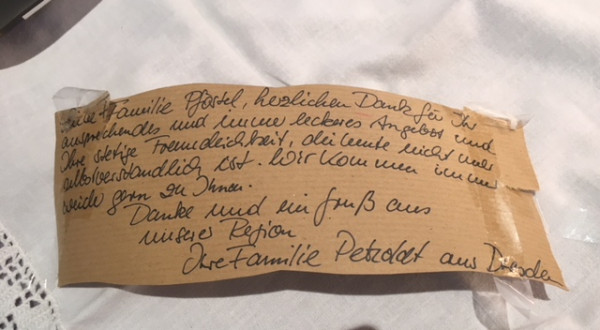 Familie Pföstel, herzlichen Dank für Ihr
ansprechendes und immer leckeres Angebot und
Ihre stetige Freundlichkeit, die heute nicht mehr
selbstverständlich ist. Wir kommen immer
wieder gern zu Ihnen.
Danke und ein Gruß aus
unserer Region.
Ihre Familie Petzoldt aus Dresden